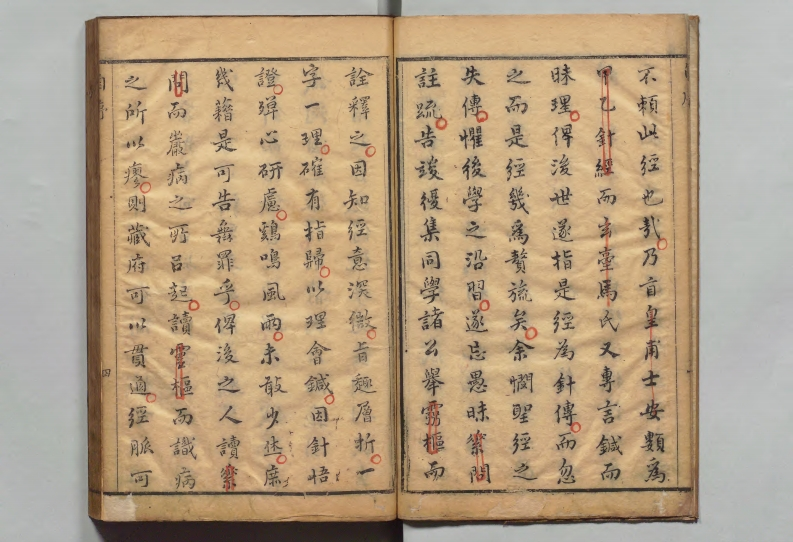 不賴此經也哉乃盲皇甫士安類為
甲乙針經而玄臺馬氏又專言鍼而
昧理俾後世遂指是經為針傳而忽
之而是經幾為贅旒矣余憫聖經之
失傳懼後學之沿習遂忘愚昧素問
註疏告竣復集同學諸公舉靈樞而
詮釋之因知經意深微旨趣層折一
字一理確有指歸以理會鍼因針悟
證殫心研慮鷄鳴風雨未敢少休庶
幾藉是可告無罪乎俾後之人讀素
問而嚴病之所呂起讀靈樞而識病
之所以瘳則藏府可以貫通經脈可
四